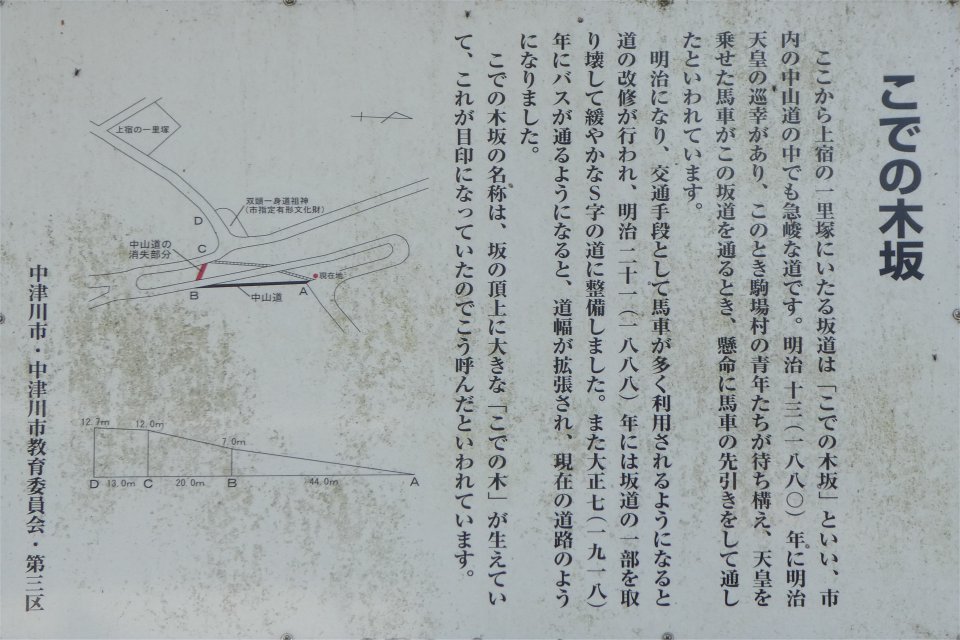 こでの木坂
ここから上宿の一里塚にいたる坂道は「こでの木坂」といい、市
内の中山道の中でも急峻な道です。明治十三（一八八〇）年に明治
天皇の巡幸があり、このとき駒場村の青年たちが待ち構え、天皇を
乗せた馬車がこの坂道を通るとき、懸命に馬車の先引きをして通し
たといわれています。
明治になり、交通手段として馬車が多く利用されるようになると
道の改修が行われ、明治二十一（一八八八）年には坂道の一部を取
り壊して緩やかなＳ字の道に整備しました。また大正七（一九一八）
年にバスが通るようになると、道幅が拡張され、現在の道路のよう
になりました。
こでの木坂の名称は、坂の頂上に大きな「こでの木」が生えてい
て、これが目印になっていたのでこう呼んだといわれています。
上宿の一里塚
双頭一身道祖神
（市指定有形文化財）
D
C
中山道の
消失部分
現在地
B
A
中山道
12.7m
12.0m
7.0m
D
13.0m
C
20.0m
B
44.0m
A
中津川市・中津川市教育委員会・第三区